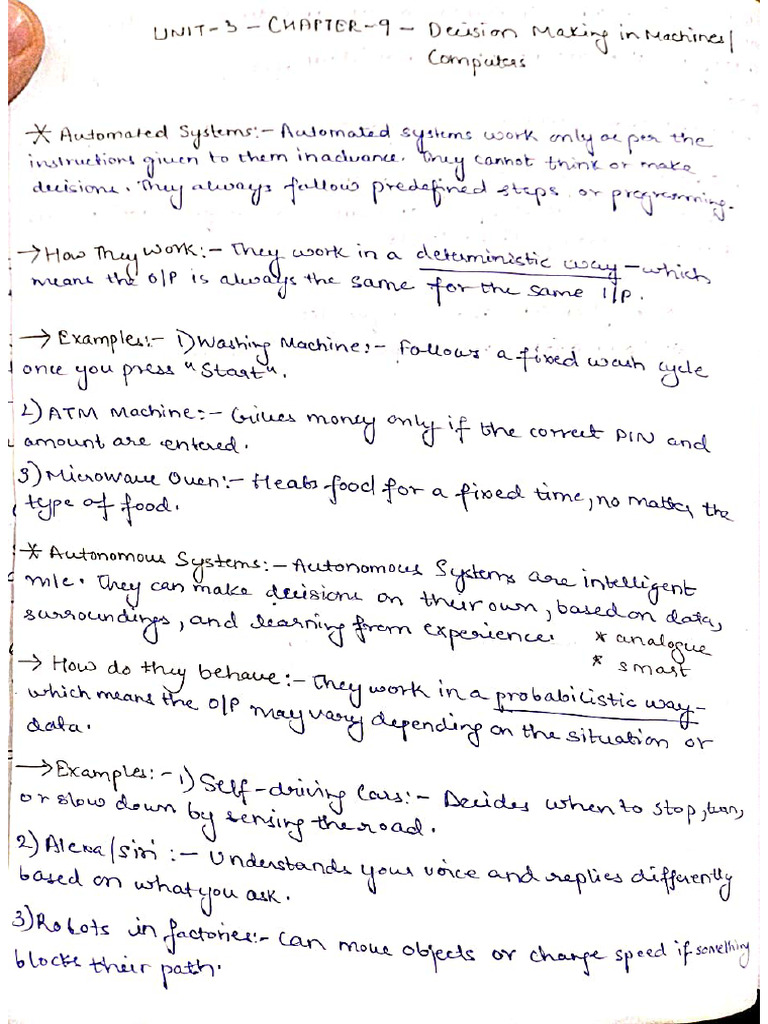 UNIT-3 - CHAPTER-9 - Decision Making in Machines/
Computers
* Automated Systems:- Automated systems work only as per the
instructions given to them inadvance. They cannot think or make
decisions. They always follow predefined steps or programming.
→ How They Work:- They work in a deterministic way - which
means the O/P is always the same for the same I/P.
→ Examples:- 1) Washing Machine:- Follows a fixed wash cycle
once you press "Start".
2) ATM Machine:- Gives money only if the correct PIN and
amount are entered.
3) Microwave Oven:- Heats food for a fixed time, no matter the
type of food.
* Autonomous Systems:- Autonomous Systems are intelligent
m/c. They can make decisions on their own, based on data,
surroundings, and learning from experience. * analogue
* smart
→ How do they behave:- They work in a probabilistic way-
which means the O/P may vary depending on the situation or
data.
→ Examples:- 1) Self-driving Cars:- Decides when to stop, turn,
or slow down by sensing the road.
2) Alexa/Siri:- Understands your voice and replies differently
based on what you ask.
3) Robots in factories:- Can move objects or change speed if something
blocks their path.